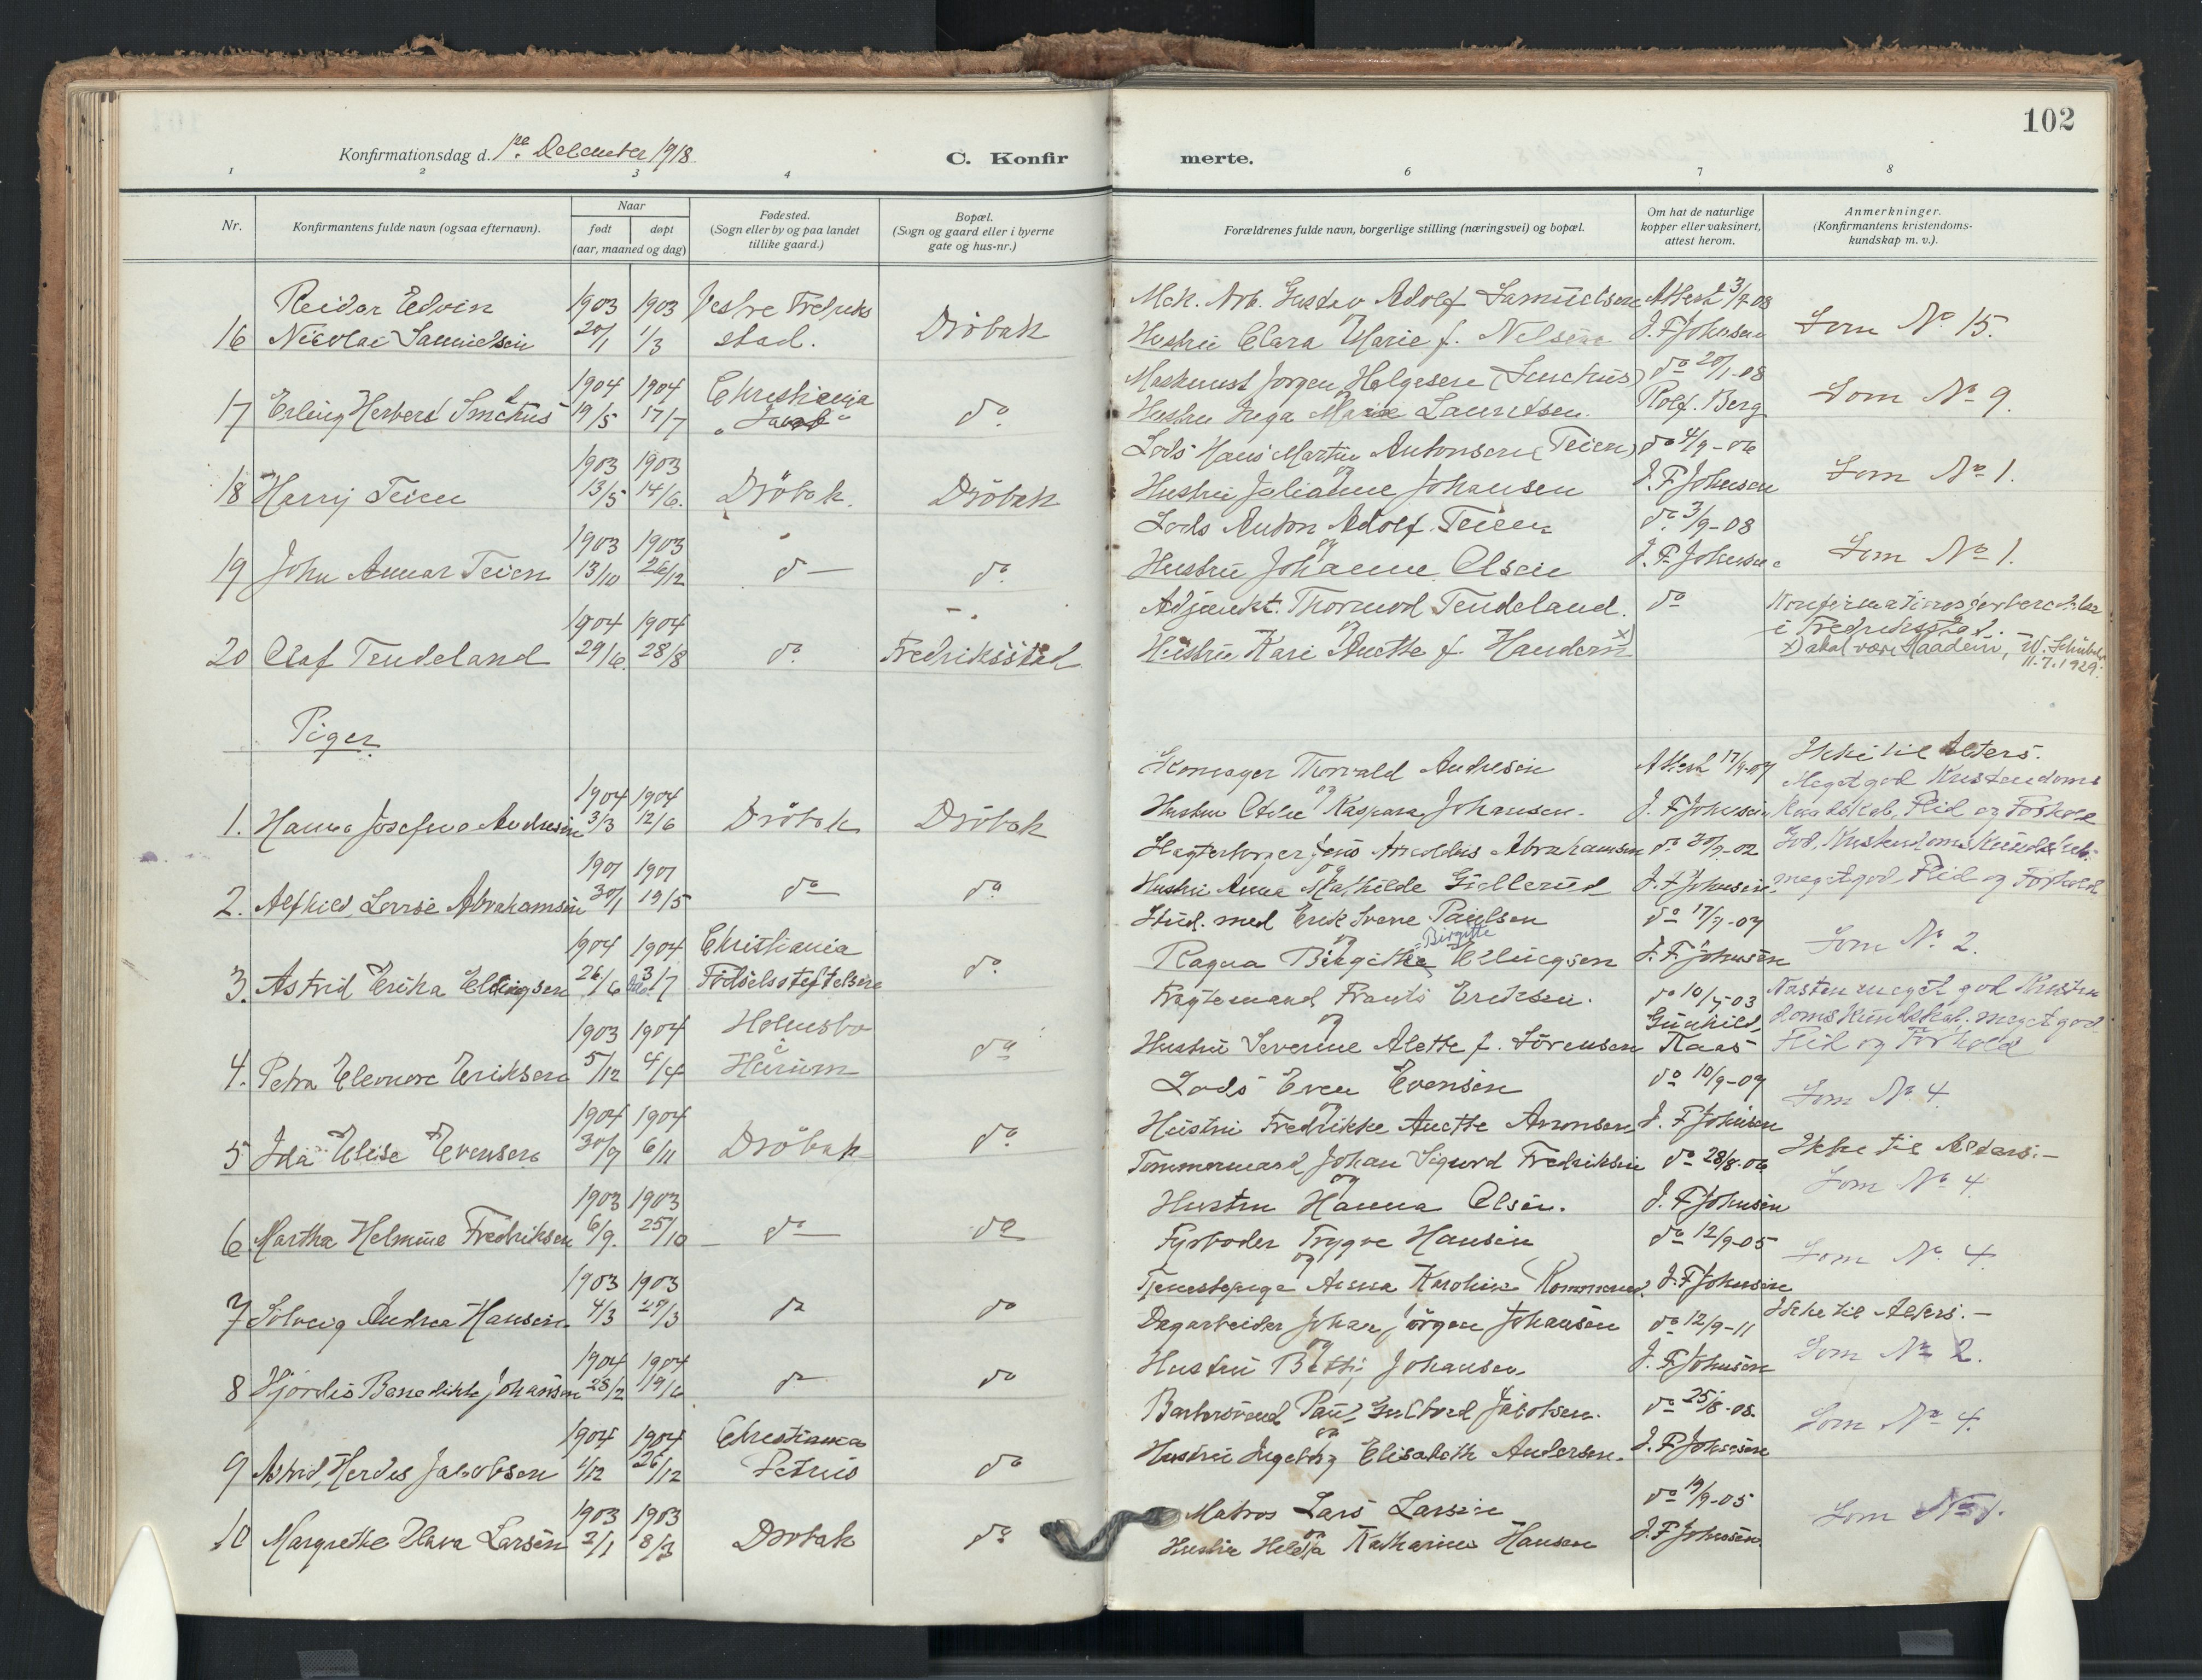 102
Konfirmationsdag d. 1ste December 1918
C. Konfir merte.
1 2 3 4 6 7 8
Nr.
Konfirmantens fulde navn (ogsaa efternavn).
Naar
født døpt
(aar, maaned og dag)
Fødested.
(Sogn eller by og paa landet
tillike gaard.)
Bopæl.
(Sogn og gaard eller i byerne
gate og hus-nr.)
Forældrenes fulde navn, borgerlige stilling (næringsvei) og bopæl.
Om hat de naturlige
kopper eller vaksinert,
attest herom.
Anmerkninger.
(Konfirmantens kristendoms-
kundskap m. v.).
Reidar Edvin 1903 1903 Vestre Fredriks
16 Nicolai Samuelsen 20/1 1/3 stad. Dröbak
Mek. Arb. Gustav Adolf Samuelsen Attest 3/9 08
og
Hustru Clara Marie f. Nelsen J. F Johnsen Som No 15.
1904 1904 Christiania
17 Erling Herbert Smehus 19/5 17/7 "Jacob" do
Maskinist Jörgen Helgesen (Smehus) do 20/1-08
Hustru Inga Marie Lauritsen. Rolf. Berg Som No 9.
1903 1903
18 Harry Teien 13/5 14/6. Dröbak. Dröbak
Lods Hans Martin Antonsen (Teien) do 4/9-06
og
Hustru Julianne Johansen J. F Johnsen Som No 1.
1903 1903
19 John Annar Teien 13/10 26/12 do do
Lods Anton Adolf Teien do 3/9-08
og
Hustru Johanne Olsen J. F. Johnsen Som No 1.
1904 1904
20 Olaf Tendeland 29/6. 28/8 do Fredriksstad
Adjunkt. Thormod Tendeland. do
og
Hustru Kari Anette f. Handern x)
Konfirmationsforberedelse
i Fredriksstad.
x) skal være Haadem, W. Schübeler
11.7.1929.
Piger
1904 1904
1. Hanna Josefine Andresen 3/3 12/6 Dröbak Dröbak
Skomager Thorvald Andresen Attest 17/9-07
og
Hustru Othe Kaspara Johansen. J. F Johnsen
Ikke til Alters.
Meget god Kristendoms
Kundskab, Flid og Forhold
1901 1901
2. Alfhild Lovise Abrahamsen 30/1 19/5 do do
Slagterborger Jens Arnoldus Abrahamsen do 30/9-02
og
Hustru Anna Mathilde Gjellerud J. F Johnsen.
God. Kristendoms Kundskab.
meget god Flid og Forhold
1904 1904 Christiania
3. Astrid Erika Ellingsen 26/6 3/7 Födselsstiftelsen do
Stud. med Erik Sverre Paulsen do 17/9-07
og Birgitte
Ragna Birgithe Ellingsen J. F Johnsen Som No 2.
1903 1904 Holmsbo
4. Petra Eleonore Eriksen 5/12 4/4 Hurum do
Fragtemand Frants Eriksen. do 10/5-03
og Gunhild
Hustru Severine Alette f. Sörensen Kaas
Næsten meget god Kristen
doms Kundskab. meget god
Flid og Forhold
1904 1904
5 Ida Elise Evensen 30/9 6/11 Dröbak do
Lods Even Evensen do 10/9-07
og
Hustru Fredrikke Anette Aronsen J. F Johnsen Som No 4.
1903 1903
6. Martha Helmine Fredriksen 6/9. 25/10 do do
Tømmermand Johan Sigurd Fredriksen do 28/8-06
og
Hustru Hanna Olsen. J. F Johnsen
Ikke til Alters.-
Som No 4.
1903 1903
7 Solveig Andrea Hansen 4/3 29/3 do do
Fyrböder Trygve Hansen do 12/9-05
og
Tjenestepige Anna Karoline J. F Johnsen Som No 4.
1904 1904
8 Hjördis Benedikte Johansen 28/2 19/6 do do
Dagarbeider Johan Jörgen Johansen do 12/9-11
og
Hustru Betty Johansen J. F Johnsen
Ikke til Alters.-
Som No 2.
1904 1904 Christiania
9 Astrid Herdis Jacobsen 1/12 26/12 Petrus do
Barbersvend Paul Gulbrand Jacobsen. do 25/8-08.
og
Hustru Ingeborg Elisabeth Andersen. J. F Johnsen Som No 4.
1903 1903
10 Margrethe Larsen 2/1 8/3 Drobak do
Matros Lars Larsen do 19/9-05
og
Hustru Helda Katharina Hansen J. F Johnsen Som No 1.